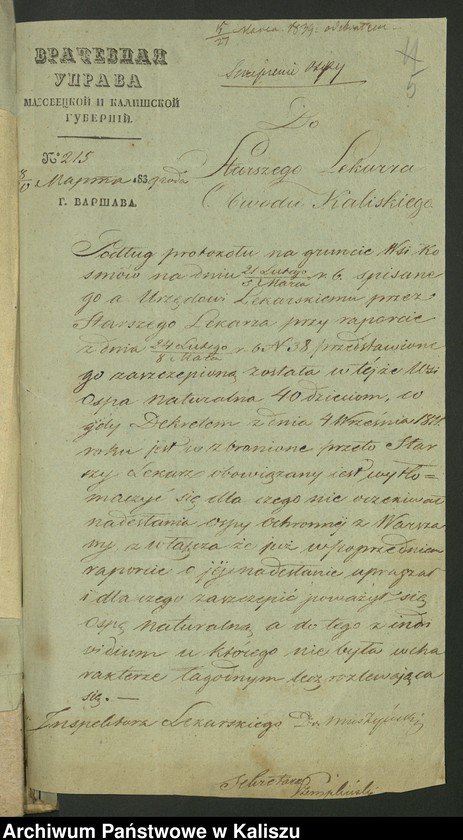 15/27 Marca 1839. odebrałem
Szczepienie Ospy
4
5
ВРАЧЕБНАЯ
УПРАВА
МАЗОВЕЦКОЙ И КАЛИШСКОЙ
ГУБЕРНІЙ.
№ 215
Марта 1839 года
Г. ВАРШАВА.
Do
Starszego Lekarza
Obwodu Kaliskiego
Podług protokołu na gruncie Wsi Ko
smów na dniu 21 Lutego / 5 Marca r. b. spisane
go a Urzędowi Lekarskiemu przez
Starszego Lekarza przy raporcie
z dnia 24 Lutego / 8 Marca r. b. N 38 przedstawione
go zaszczepioną została w tejże Wsi
Ospa naturalna 40 dzieciom, co
gdy Dekretem z dnia 4 Września
roku jest wzbronione przeto Star
szy Lekarz obowiązany jest wytło=
maczyć się dla czego nie oczekiwał
nadesłania ospy ochronnéj z Warsza
wy zwłaszcza że już w poprzednim
raporcie o jéj nadesłanie upraszał
i dla czego zaszczepić poważył się
ospę naturalną, a do tego z indi
vidium u którego nie była w cha
rakterze łagodnym lecz rozlewająca
się. —
Inspektora Lekarskiego Dr Muszyński
Sekretarz